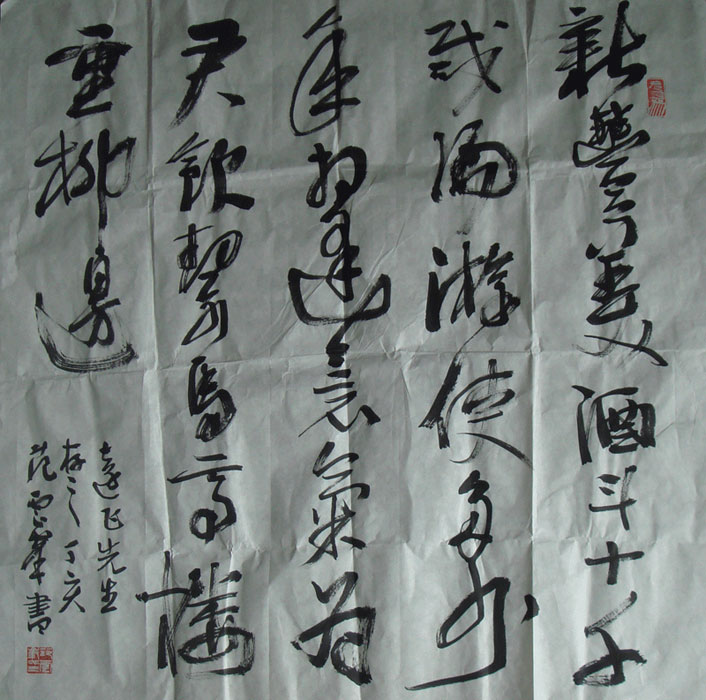 新豐美酒斗十千
咸陽游俠多少
年相逢意氣為
君飲繫馬高樓
垂柳邊
遠飛先生
存之丁亥
范雲峯書